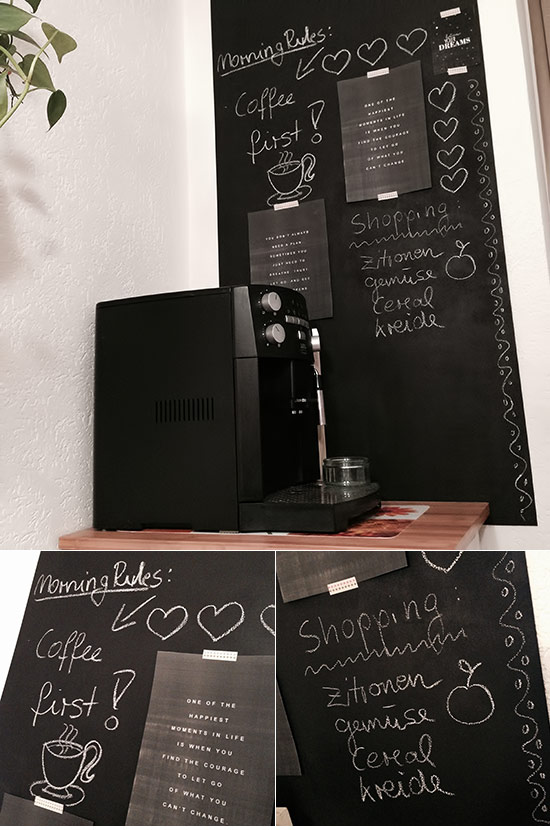 Morning Rules:
Coffee
first!
DREAMS
ONE OF THE
HAPPIEST
MOMENTS IN LIFE
IS WHEN YOU
FIND THE COURAGE
TO LET GO
OF WHAT YOU
CAN'T CHANGE
YOU DON'T ALWAYS
NEED A PLAN.
SOMETIMES YOU
JUST NEED TO
BREATHE, TRUST,
LET GO, AND SEE
Shopping:
Zitronen
gemüse
Cereal
kreide
Morning Rules:
Coffee
first!
ONE OF THE
HAPPIEST
MOMENTS IN LIFE
IS WHEN YOU
FIND THE COURAGE
TO LET GO
OF WHAT YOU
CAN'T CHANGE.
Shopping:
Zitronen
gemüse
Cereal
kreide